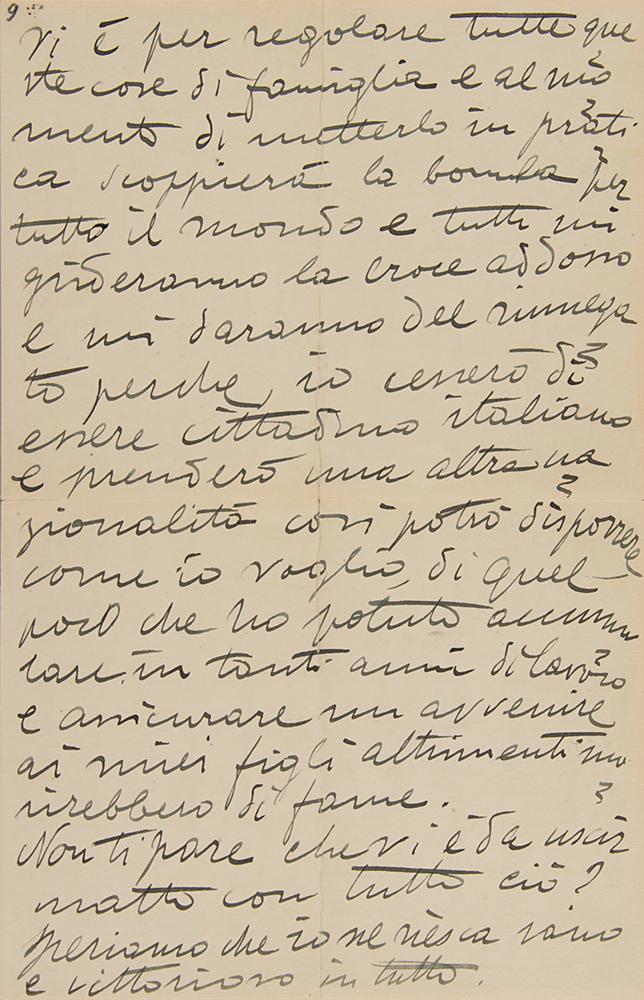 9
vi è per regolare tutte que
ste cose di famiglia e al mo
mento di metterlo in prati
ca scoppierà la bomba per
tutto il mondo e tutti mi
grideranno la croce addosso
e mi daranno del rinnega
to perche, io cesserò di
essere cittadino italiano
e prenderò una altra na
zionalità così potrò disporre
come io voglio, di quel
poco che ho potuto accumu
lare in tanti anni di lavoro
e assicurare un avvenire
ai miei figli altrimenti mo
rirebbero di fame.
Non ti pare che vi è da uscir
matto con tutto ciò?
Speriamo che io ne riesca sano
e vittorioso in tutto.